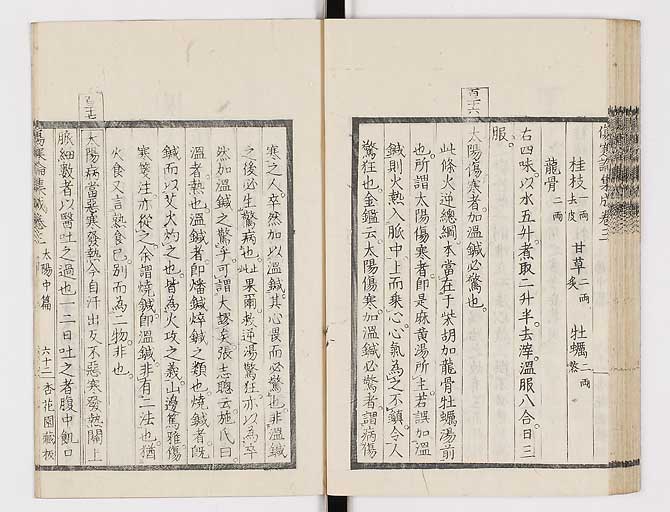 傷寒論集成卷三
桂枝一兩去皮 甘草二兩炙 牡蠣二兩熬
龍骨二兩
右四味。以水五升。煮取二升半。去滓。溫服八合。日三
服。
百十六
太陽傷寒者。加溫鍼必驚也。
此條火逆總綱。本當在于柴胡加龍骨牡蠣湯前
也。所謂太陽傷寒者。即是麻黃湯所主。若誤加溫
鍼。則火熱入脈中。上而乘心。心氣為之不鎮。令人
驚狂也。金鑑云。太陽傷寒。加溫鍼必驚者。謂病傷
寒之人。卒然加以溫鍼。其心畏而必驚也。非溫鍼
之後必生驚病也。此果爾。救逆湯驚狂。亦以為卒
然加溫鍼之驚乎。可謂大謬矣。張志聰云。施氏曰。
溫者熱也。溫鍼者。即燔鍼焠鍼之類也。燒鍼者。既
鍼而以艾火灼之也。皆為火攻之義。山邊篤雅傷
寒箋注亦從之。余謂燒鍼即溫鍼。非有二法也。猶
火食又言熟食已。別而為二物。非也。
百十七
太陽病。當惡寒發熱。今自汗出。反不惡寒發熱。關上
脈細數者。以醫吐之過也。一二日吐之者。腹中飢。口
傷寒論集成卷三 太陽中篇 六十二 杏花園藏板